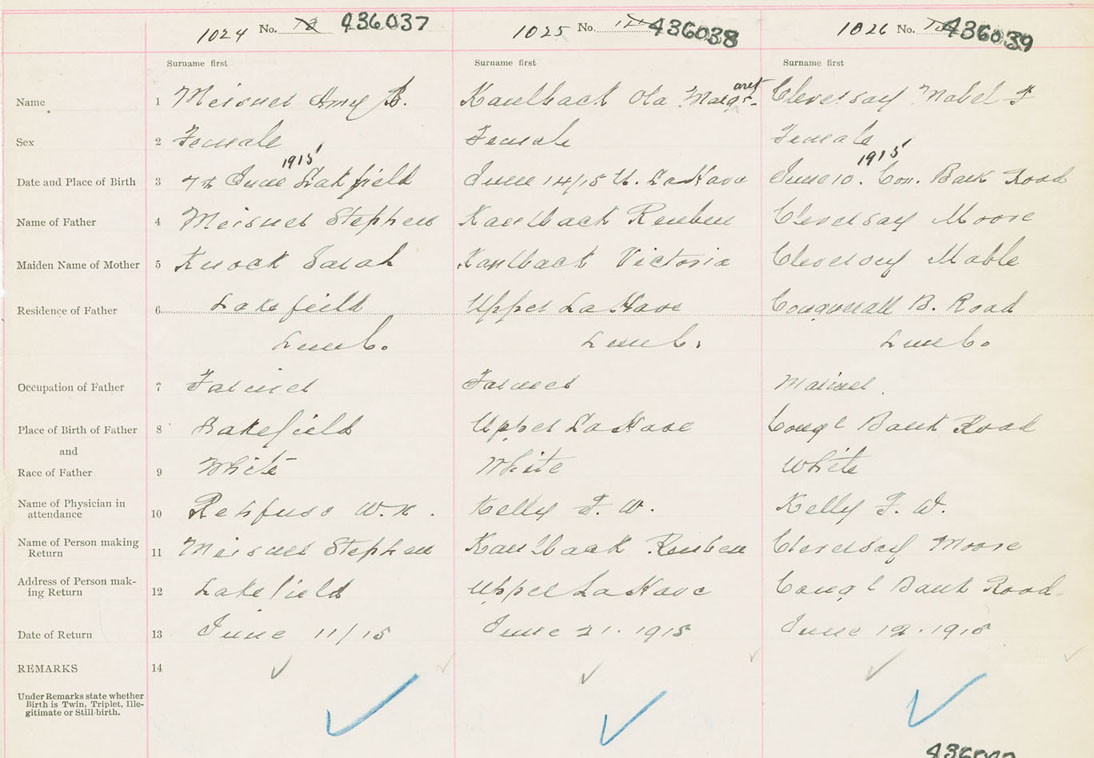 1024 No. 436037
1025 No. 436038
1026 No. 436039
Surname first Surname first Surname first
Name 1 Meisner Amy B. Kaulback Ola Margaret Cleversay Mabel F
Sex 2 Female Female Female
Date and Place of Birth 3 7th June 1915 Lakefield June 14/15 U. LaHave June 10. 1915 Con. Bank Road
Name of Father 4 Meisner Stephen Kaulback Reuben Cleversay Moore
Maiden Name of Mother 5 Knock Sarah Kaulback Victoria Cleversay Mable
Residence of Father 6 Lakefield Upper LaHave Conquerall B. Road
Lun Co. Lun Co. Lun Co.
Occupation of Father 7 Farmer Farmer Mariner
Place of Birth of Father 8 Lakefield Upper LaHave Conql Bank Road
and
Race of Father 9 White White White
Name of Physician in
attendance 10 Rehfuss W. N. Kelly F. W. Kelly F. W.
Name of Person making
Return 11 Meisner Stephen Kaulback Reuben Cleversay Moore
Address of Person mak-
ing Return 12 Lakefield Upper LaHave Conql Bank Road
Date of Return 13 June 11/15 June 21. 1915 June 12. 1915
REMARKS 14
Under Remarks state whether
Birth is Twin, Triplet, Ille-
gitimate or Still-birth.